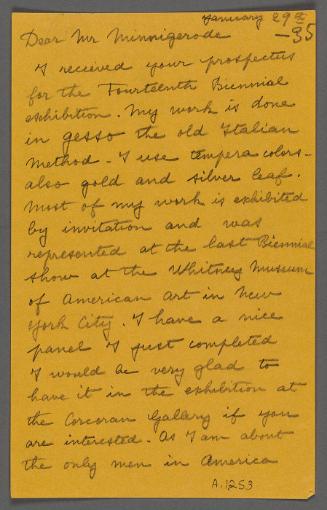 January 29th
Dear Mr Minnigerode -35
I received your prospectus
for the Fourteenth Biennial
exhibition. My work is done
in gesso the old Italian
method - I use tempera colors -
also gold and silver leaf.
Most of my work is exhibited
by invitation and was
represented at the last Biennial
show at the Whitney Museum
of American Art in New
York City. I have a nice
panel I just completed
I would be very glad to
have it in the exhibition at
the Corcoran Gallery if you
are interested. As I am about
the only men in America
A.1253